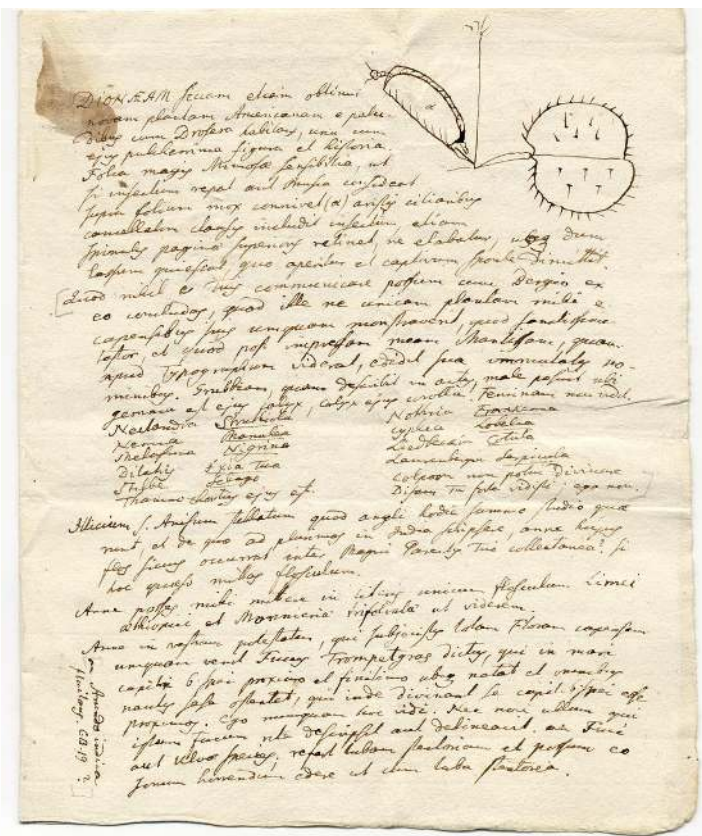 DIONÆAM siccam etiam obtinui
novam plantam Americanam e palu-
dibus cum Drosera habitans, una cum
ejus pulcherrima figura et historia.
Folia magis Mimosæ sensibilia, ut
si insectum repat aut Musca consideat
supra folium mox connivet (α) aristis ciliaribus
cancellatim clausis includit insectum, etiam
stimulus paginæ superioris retinet, ne elabatur, usque dum
lassum quiescat quo aperitur et captivum sponte dimittit.
[Quod nihil e tuis communicare possum cum Bergio ex
eo concludas, quod ille ne unicam plantam mihi e
capensibus suis unquam monstraverit, quod sanctissime
testor, et quod post impressam meam Mantissam, quam
apud Typographum viderat, edidit sua immutatis no-
minibus. Grubbiam, quam descripsit in actis, male posuit ubi
germen est ejus calyx, calyx ejus corolla. Femininam non vidit.
Nectandra Struthiola Nothria Frankenia
Nemia Manulea Cyphia Lobelia
Thelosma Negrina Lidbeckia Cotula
Dilatris Ixia Tua Laurembergia Serpicula
Stilbe Selago Colpoon non potui divinare
Thamnochortus ejus est. Disam Tu forte vidisti; ego non.
Illicium s. Anisum stellatum quod angli hodie summo studio quæ
runt, et de quo ad plurimos in India scripsere, anne hujus
flos siccus occurrat inter Magni Parentis Tui collectanea? si
hoc quæso mittas flosculum.
Anne posses mihi mittere in literis unicum flosculum Limei
æthiopici et Monnieria trifoliata ut viderem.
Anne in vestram potestatem, qui subjecistis totam Floram capensem
unquam venit Fucus Trompetgras dictus, qui in mari
capitis b. spei proximo et finitimo ubique natat et omnibus
nautis sese ostentet, qui inde divinant se capiti b. spei esse
proximos. Ego nunquam hoc vidi. Nec novi ullum qui
istum fucum rite descripsit aut delineavit. an Fuci
aut ulvæ species; refert tubam stentoream et possum eo
sonum horrendum edere ut cum tuba stentorea.
an Arundo indica
fluitans. CB. 19 ?
α